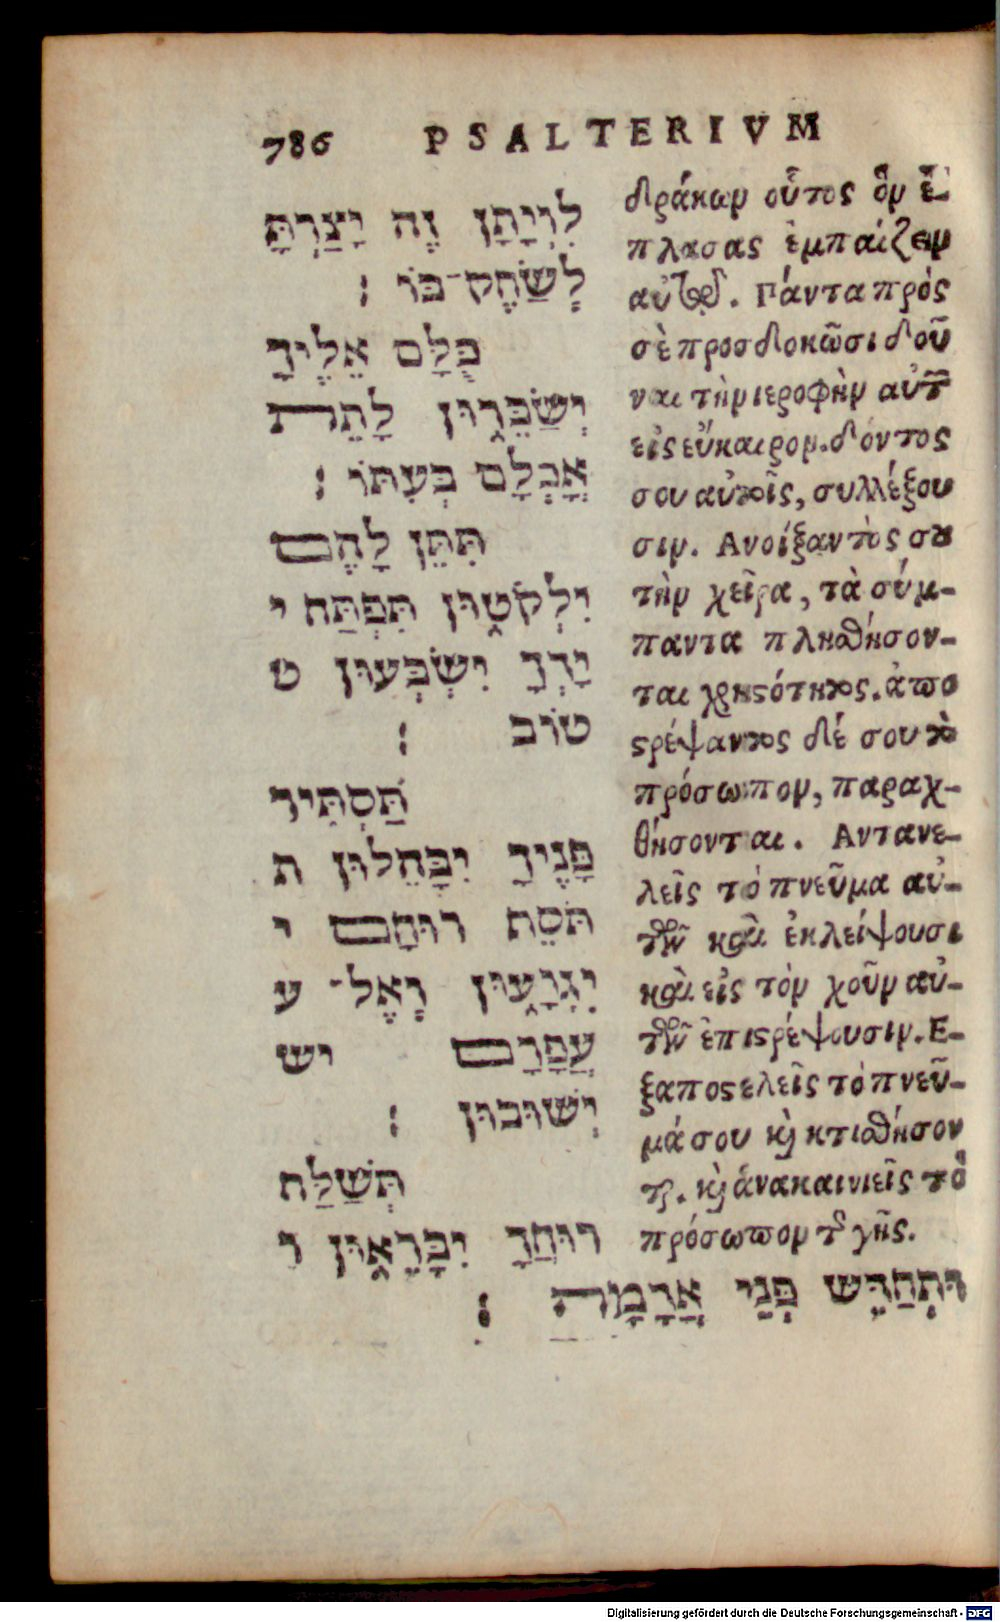 786 PSALTERIVM
לִוְיָתָן זֶה יָצַרְתָּ
לְשַׂחֶק־בּוֹ :
כֻּלָּם אֵלֶיךָ
יְשַׂבֵּרוּן לָתֵת
אָכְלָם בְּעִתּוֹ :
תִּתֵּן לָהֶם
יִלְקֹטוּן תִּפְתַּח י
יָדְךָ יִשְׂבְּעוּן ט
טוֹב :
תַּסְתִּיר
פָּנֶיךָ יִבָּהֵלוּן ת
תֹּסֵת רוּחָם י
יִגְוָעוּן וְאֶל־ ע
עֲפָרָם יש
יְשׁוּבוּן :
תְּשַׁלַּח
רוּחֲךָ יִבָּרֵאוּן ו
וּתְחַדֵּשׁ פְּנֵי אֲדָמָה :
δράκων οὗτος ὃν ἔ-
πλασας ἐμπαίζειν
αὐτῷ. Πάντα πρός
σὲ προσδοκῶσι δοῦ
ναι τὴν τροφὴν αὐτῶν
εἰς εὔκαιρον. δόντος
σου αὐτοῖς, συλλέξου
σιν. Ανοίξαντὸς σου
τὴν χεῖρα, τὰ σύμ-
παντα πληθήσον-
ται χρηστότητος. ἀπο
στρέψαντος δέ σου τὸ
πρόσωπον, παραχ-
θήσονται. Αντανε-
λεῖς τὸ πνεῦμα αὐ-
τῶν καὶ ἐκλείψουσι
καὶ εἰς τὸν χοῦν αὐ-
τῶν ἐπιστρέψουσιν. Ε-
ξαποστελεῖς τὸ πνεῦ-
μά σου καὶ κτισθήσον
ται. καὶ ἀνακαινιεῖς τὸ
πρόσωπον τῆς γῆς.
Digitalisierung gefördert durch die Deutsche Forschungsgemeinschaft - DFG